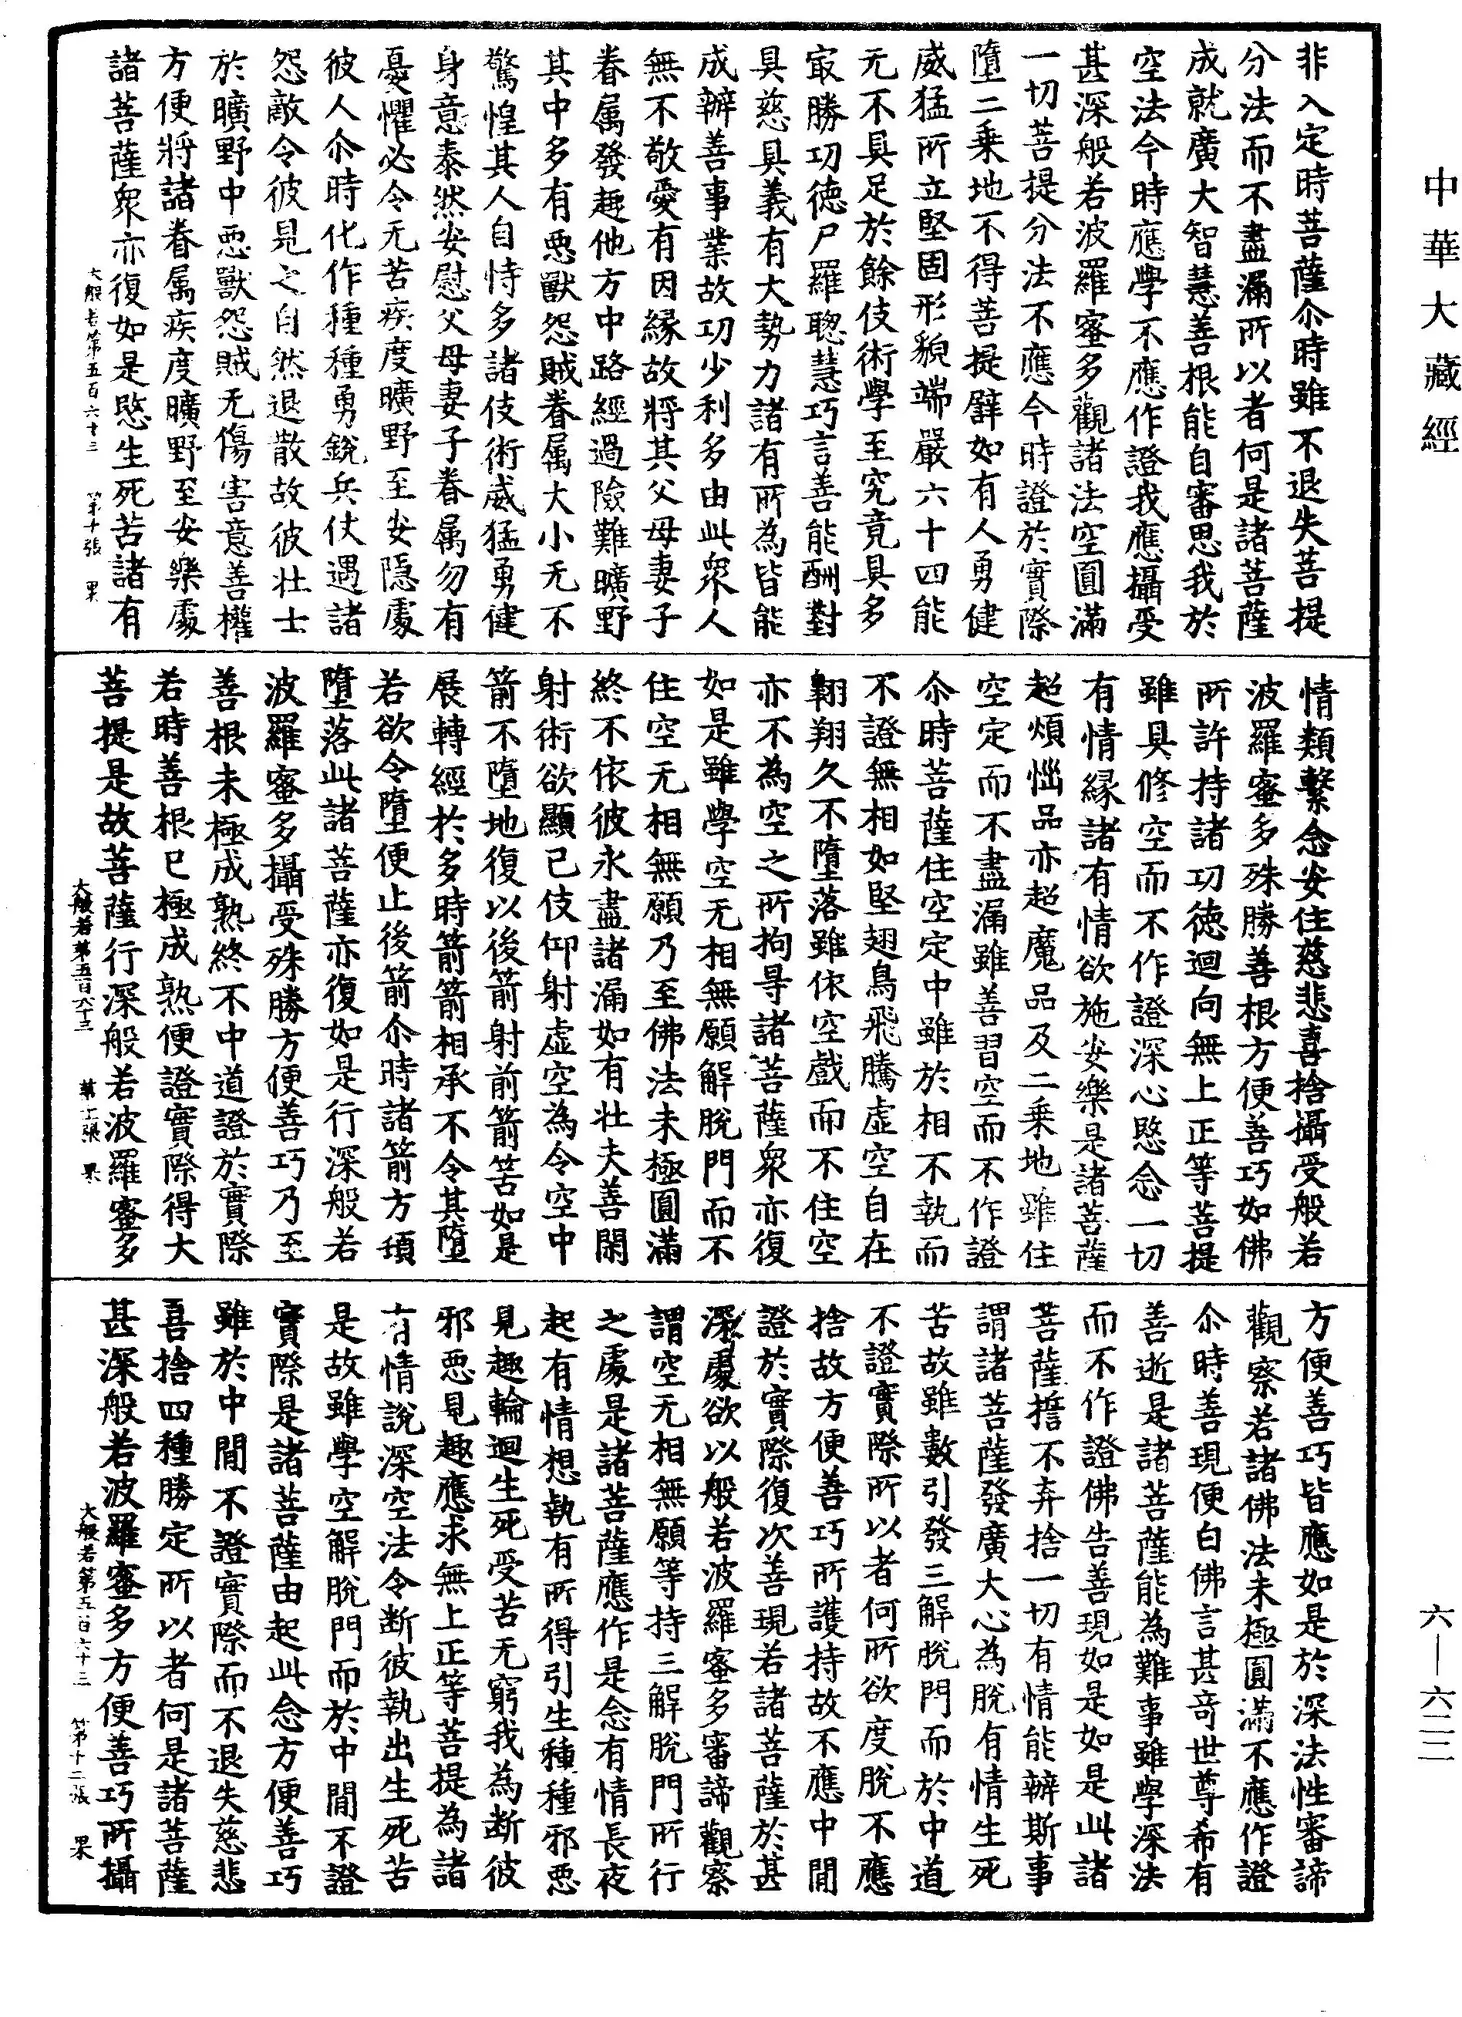 中華大藏經
非入定時菩薩尒時雖不退失菩提
分法而不盡漏所以者何是諸菩薩
成就廣大智慧善根能自審思我於
空法今時應學不應作證我應攝受
甚深般若波羅蜜多觀諸法空圓滿
一切菩提分法不應今時證於實際
墮二乘地不得菩提譬如有人勇健
威猛所立堅固形貌端嚴六十四能
无不具足於餘伎術學至究竟具多
㝡勝功德尸羅聰慧巧言善能酬對
具慈具義有大勢力諸有所為皆能
成辦善事業故功少利多由此衆人
無不敬愛有因緣故將其父母妻子
眷属發趣他方中路經過險難曠野
其中多有惡獸怨賊眷属大小无不
驚惶其人自恃多諸伎術威猛勇健
身意泰然安慰父母妻子眷属勿有
憂懼必令无苦疾度曠野至安隱處
彼人尒時化作種種勇銳兵仗遇諸
怨敵令彼見之自然退散故彼壮士
於曠野中惡獸怨賊无傷害意善權
方便將諸眷属疾度曠野至安樂處
諸菩薩衆亦復如是愍生死苦諸有
大般若第五百六十三 第十張 果
情類繫念安住慈悲喜捨攝受般若
波羅蜜多殊勝善根方便善巧如佛
所許持諸功德迴向無上正等菩提
雖具修空而不作證深心愍念一切
有情緣諸有情欲施安樂是諸菩薩
超煩惱品亦超魔品及二乘地雖住
空定而不盡漏雖善習空而不作證
尒時菩薩住空定中雖於相不執而
不證無相如堅翅鳥飛騰虛空自在
翱翔久不墮落雖依空戲而不住空
亦不為空之所拘㝵諸菩薩衆亦復
如是雖學空无相無願解脫門而不
住空无相無願乃至佛法未極圓滿
終不依彼永盡諸漏如有壮夫善閑
射術欲顯己伎仰射虛空為令空中
箭不墮地復以後箭射前箭筈如是
展轉經於多時箭箭相承不令其墮
若欲令墮便止後箭尒時諸箭方頓
墮落此諸菩薩亦復如是行深般若
波羅蜜多攝受殊勝方便善巧乃至
善根未極成熟終不中道證於實際
若時善根已極成熟便證實際得大
菩提是故菩薩行深般若波羅蜜多
大般若第五百六十三 第十一張 果
方便善巧皆應如是於深法性審諦
觀察若諸佛法未極圓滿不應作證
尒時善現便白佛言甚奇世尊希有
善逝是諸菩薩能為難事雖學深法
而不作證佛告善現如是如是此諸
菩薩誓不弃捨一切有情能辦斯事
謂諸菩薩發廣大心為脫有情生死
苦故雖數引發三解脫門而於中道
不證實際所以者何所欲度脫不應
捨故方便善巧所護持故不應中間
證於實際復次善現若諸菩薩於甚
深處欲以般若波羅蜜多審諦觀察
謂空无相無願等持三解脫門所行
之處是諸菩薩應作是念有情長夜
起有情想執有所得引生種種邪惡
見趣輪迴生死受苦无窮我為斷彼
邪惡見趣應求無上正等菩提為諸
有情說深空法令斷彼執出生死苦
是故雖學空解脫門而於中間不證
實際是諸菩薩由起此念方便善巧
雖於中間不證實際而不退失慈悲
喜捨四種勝定所以者何是諸菩薩
甚深般若波羅蜜多方便善巧所攝
大般若第五百六十三 第十二張 果
六—六二二